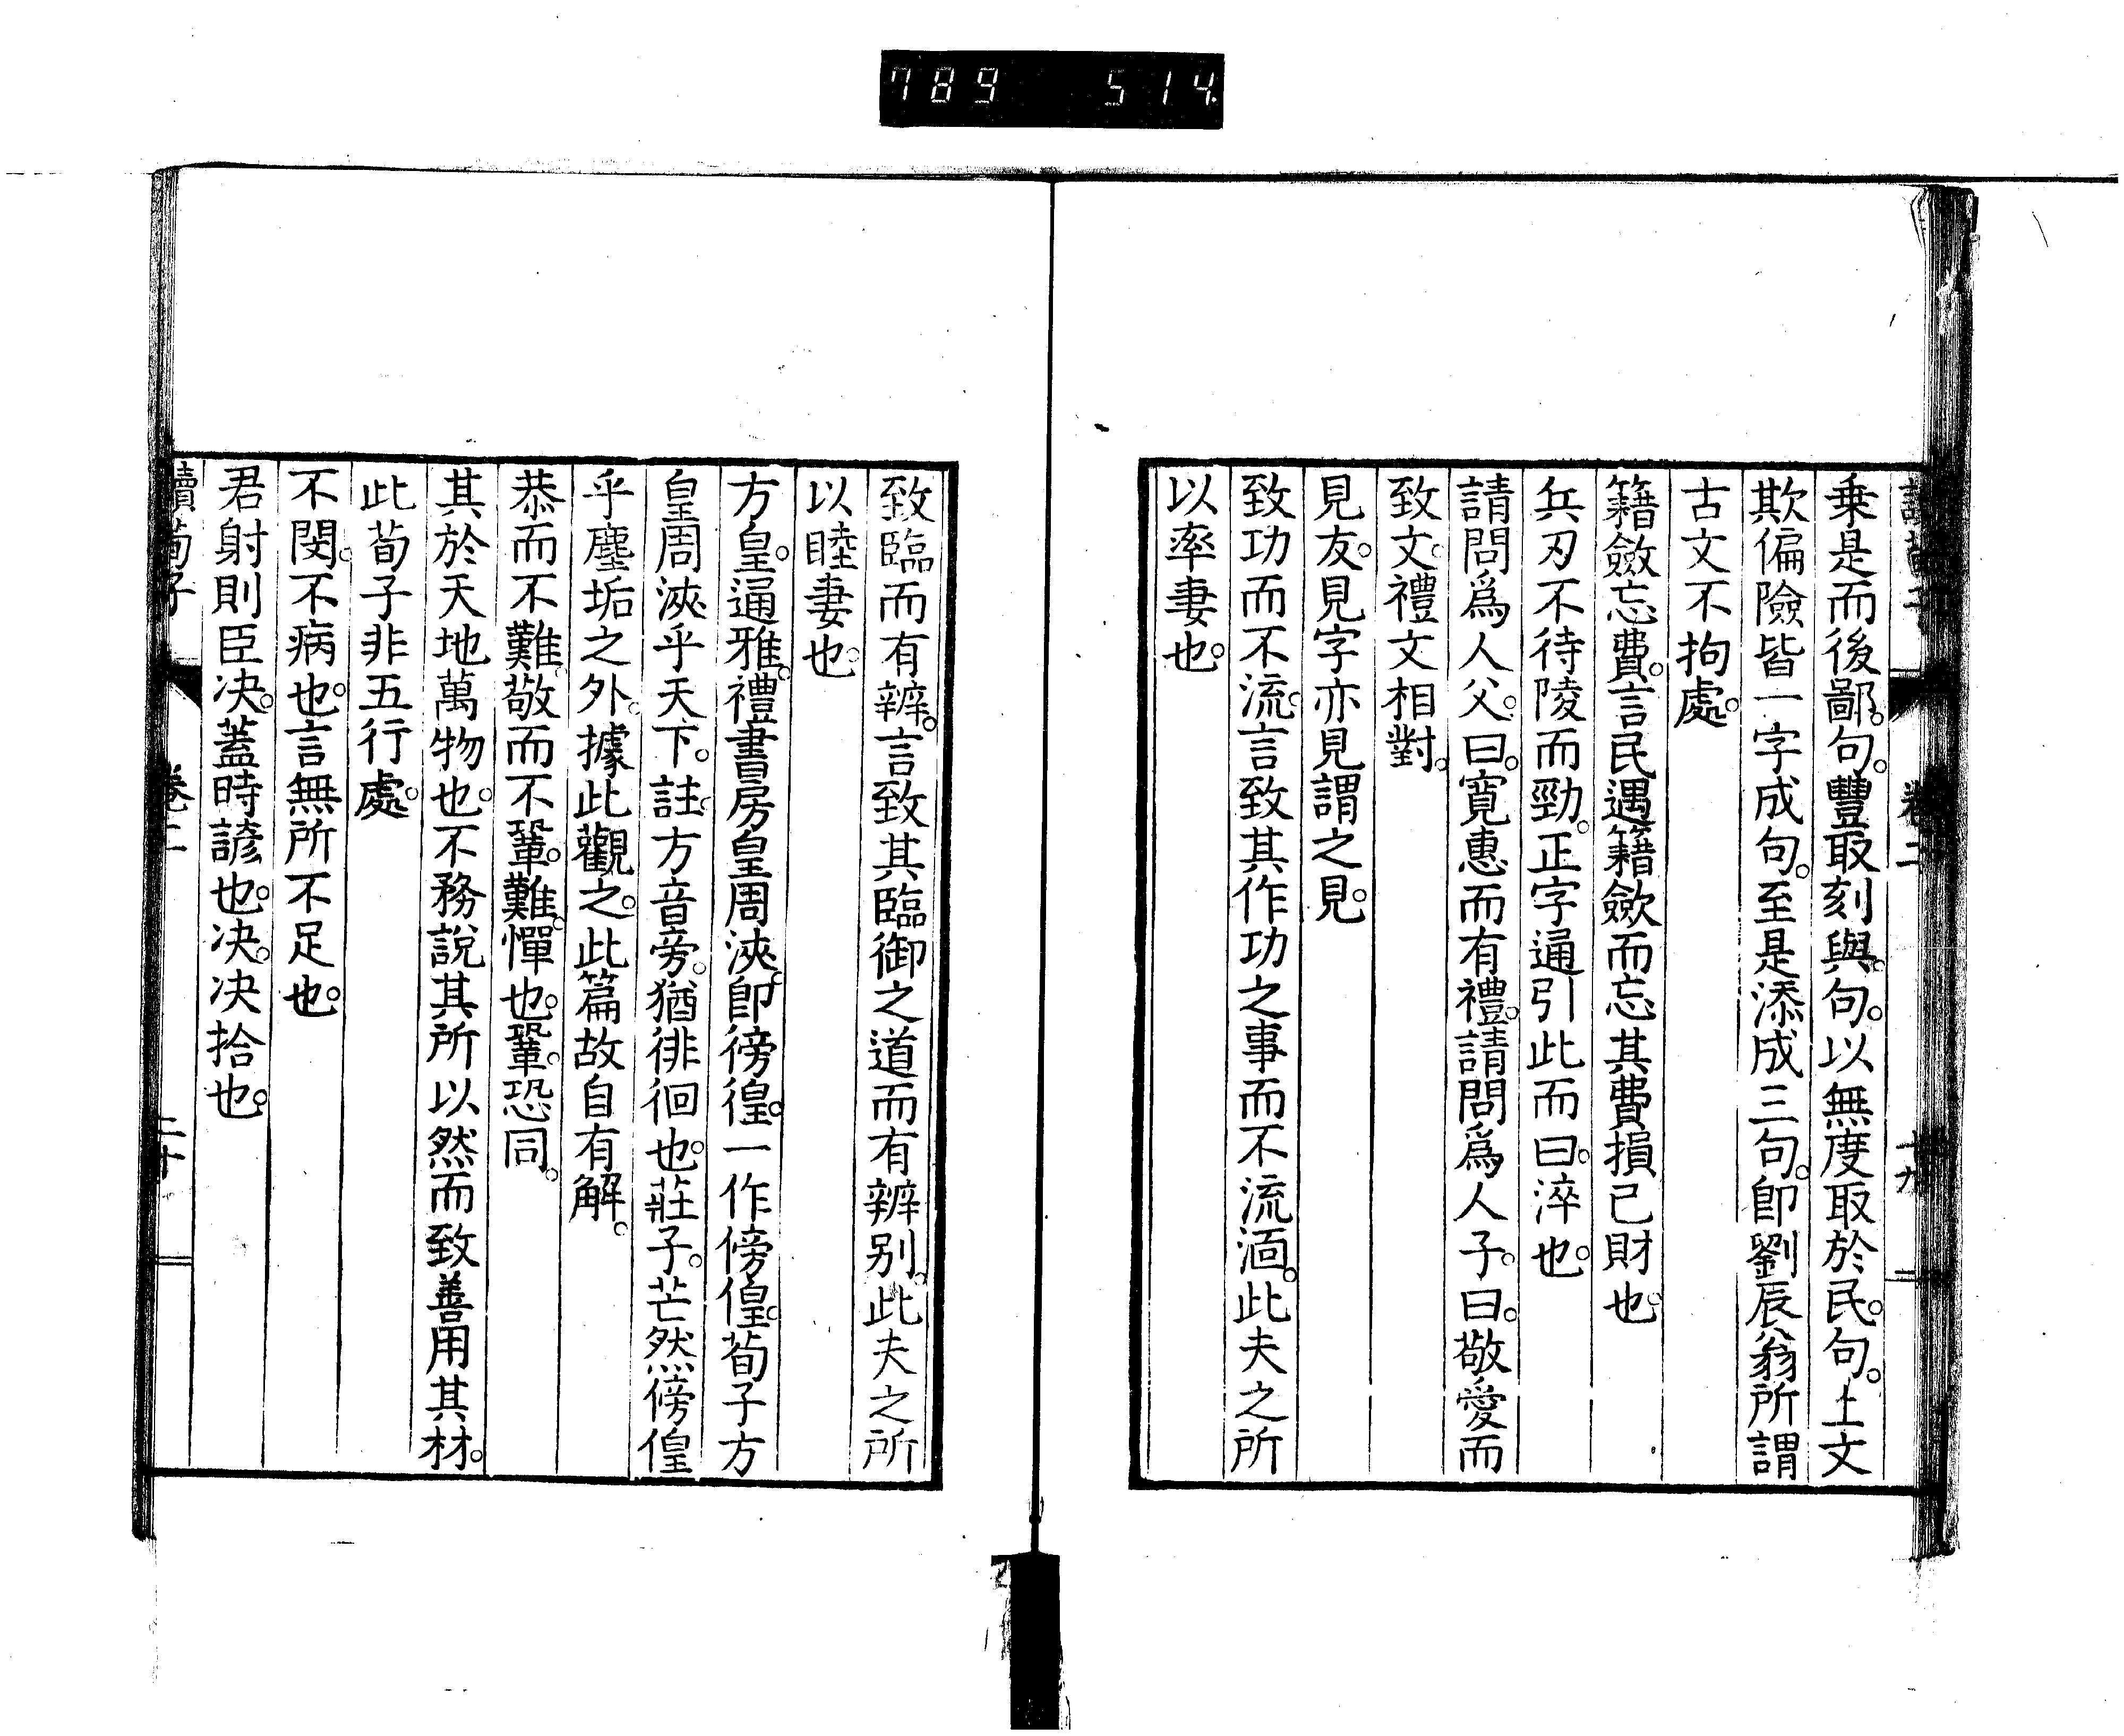 789 514
讀荀子 卷二 十九
乗是而後鄙。句。豐取刻與。句。以無度取於民。句。上文
欺偏險皆一字成句。至是添成三句。卽劉辰翁所謂
古文不拘處。
籍斂忘費。言民遇籍歛而忘其費損已財也。
兵刃不待陵而勁。正字通引此而曰。淬也。
請問爲人父。曰。寛惠而有禮。請問爲人子。曰。敬愛而
致文。禮文相對。
見友。見字亦見謂之見。
致功而不流。言致其作功之事而不流湎。此夫之所
以率妻也。
致臨而有辨。言致其臨御之道而有辨别。此夫之所
以睦妻也。
方皇。通雅。禮書房皇周浹。卽徬徨。一作傍偟。荀子方
皇周浹乎天下。註。方音旁。猶徘徊也。莊子。芒然傍偟
乎塵垢之外。據此觀之。此篇故自有解。
恭而不難。敬而不鞏。難。憚也。鞏。恐同。
其於天地萬物也。不務說其所以然而致善用其材。
此荀子非五行處。
不閔。不病也。言無所不足也。
君射則臣决。蓋時諺也。决。决拾也。
讀荀子 卷二 二十